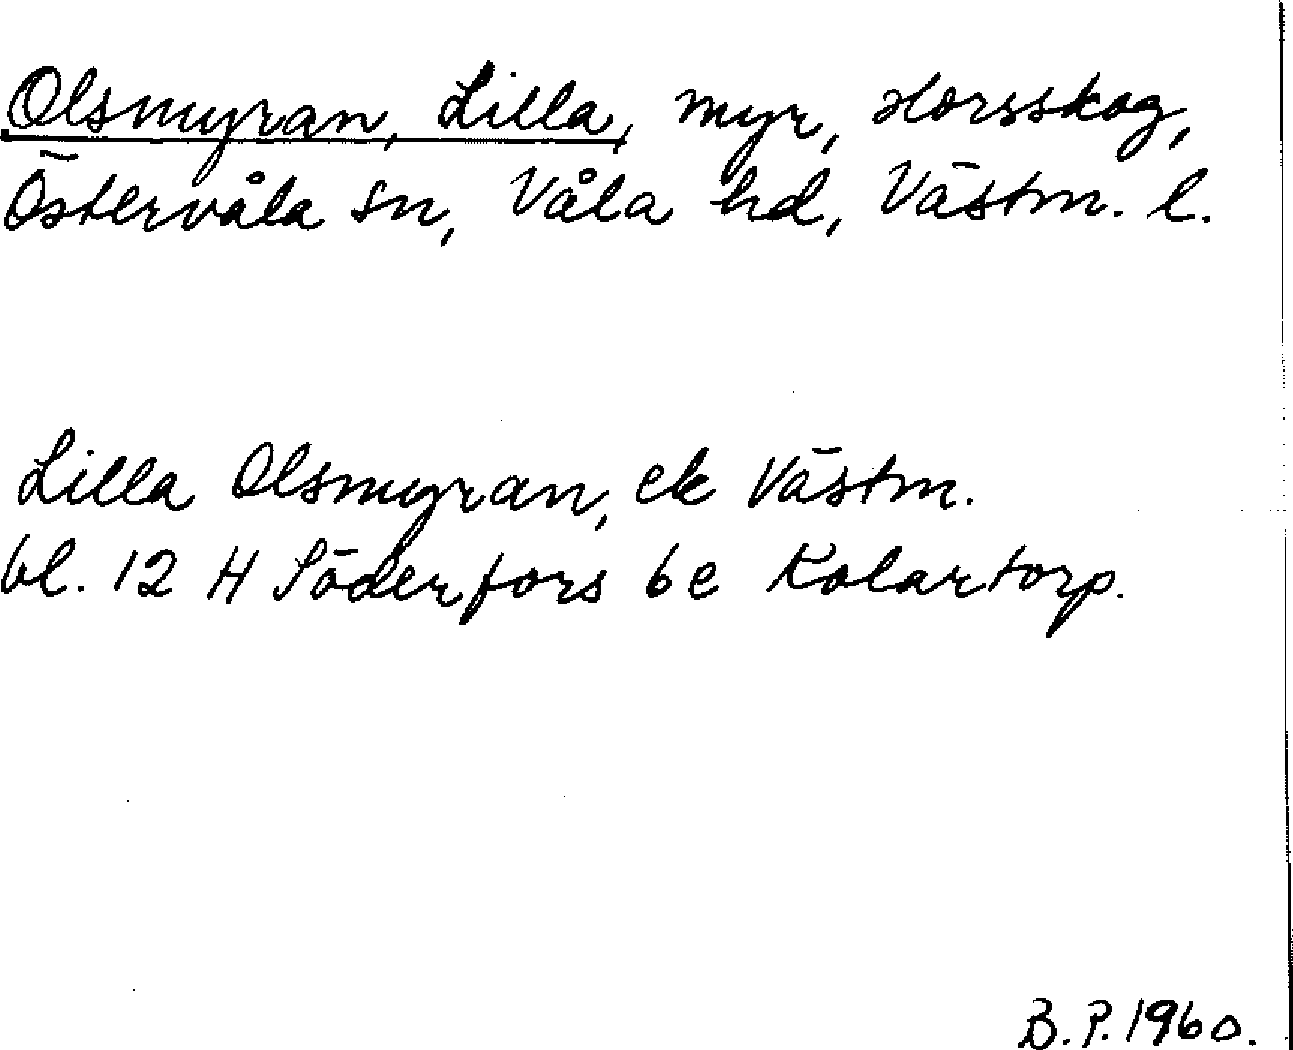 Olsmyran, Lilla, myr, Horsskog,
Östervåla sn, Våla hd, Västm. l.
Lilla Olsmyran, ek Västm.
bl. 12 H Söderfors 6 e Kolartorp.
B.P. 1960.